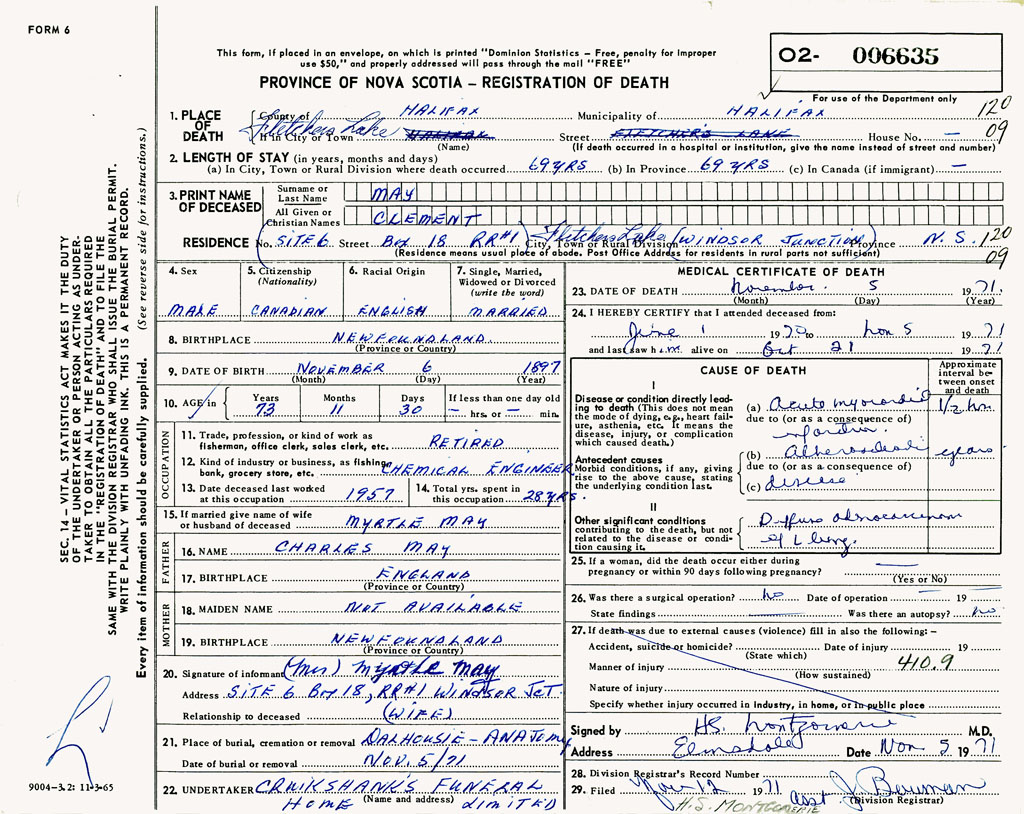 FORM 6
This form, if placed in an envelope, on which is printed "Dominion Statistics – Free, penalty for improper
use $50," and properly addressed will pass through the mail "FREE"
PROVINCE OF NOVA SCOTIA – REGISTRATION OF DEATH
O2- 006635
For use of the Department only
1. PLACE OF DEATH
County of HALIFAX Municipality of HALIFAX 120
If in City or Town Fletchers Lake HALIFAX Street FLETCHER'S LAKE House No. – 09
(Name) (If death occurred in a hospital or institution, give the name instead of street and number)
2. LENGTH OF STAY (in years, months and days)
(a) In City, Town or Rural Division where death occurred 69 YRS (b) In Province 69 YRS (c) In Canada (if immigrant) –
3. PRINT NAME OF DECEASED
Surname or Last Name MAY
All Given or Christian Names CLEMENT
RESIDENCE No. SITE 6 Street Box 18 RR#1 City, Town or Rural Division Fletchers Lake (WINDSOR JUNCTION) Province N.S. 120
(Residence means usual place of abode. Post Office Address for residents in rural parts not sufficient) 09
4. Sex MALE
5. Citizenship (Nationality) CANADIAN
6. Racial Origin ENGLISH
7. Single, Married, Widowed or Divorced (write the word) MARRIED
8. BIRTHPLACE NEWFOUNDLAND
(Province or Country)
9. DATE OF BIRTH NOVEMBER 6 1897
(Month) (Day) (Year)
10. AGE in Years 73 Months 11 Days 30 If less than one day old – hrs. or – min.
OCCUPATION
11. Trade, profession, or kind of work as fisherman, office clerk, sales clerk, etc. RETIRED
12. Kind of industry or business, as fishing, bank, grocery store, etc. CHEMICAL ENGINEER
13. Date deceased last worked at this occupation 1957
14. Total yrs. spent in this occupation 28 YRS.
15. If married give name of wife or husband of deceased MYRTLE MAY
FATHER
16. NAME CHARLES MAY
17. BIRTHPLACE ENGLAND
(Province or Country)
MOTHER
18. MAIDEN NAME NOT AVAILABLE
19. BIRTHPLACE NEWFOUNDLAND
(Province or Country)
20. Signature of informant (Mrs) Myrtle May
Address SITE 6 Box 18, RR#1 WINDSOR JCT.
Relationship to deceased (WIFE)
21. Place of burial, cremation or removal DALHOUSIE – ANATOMY
Date of burial or removal NOV. 5/71
22. UNDERTAKER CRUIKSHANK'S FUNERAL
HOME (Name and address) LIMITED
MEDICAL CERTIFICATE OF DEATH
23. DATE OF DEATH November 5 1971.
(Month) (Day) (Year)
24. I HEREBY CERTIFY that I attended deceased from:
June 1 1970 to Nov 5 1971
and last saw him alive on Oct 21 1971
CAUSE OF DEATH
Approximate interval between onset and death
I
Disease or condition directly leading to death (This does not mean the mode of dying, e.g., heart failure, asthenia, etc. It means the disease, injury, or complication which caused death.)
(a) Acute myocardial 1/2 hr.
due to (or as a consequence of)
infarction.
Antecedent causes
Morbid conditions, if any, giving rise to the above cause, stating the underlying condition last.
(b) years
due to (or as a consequence of)
(c) disease
II
Other significant conditions contributing to the death, but not related to the disease or condition causing it.
Diffuse adenocarcinoma
of L lung.
25. If a woman, did the death occur either during pregnancy or within 90 days following pregnancy? –
(Yes or No)
26. Was there a surgical operation? No Date of operation – 19
State findings Was there an autopsy? No
27. If death was due to external causes (violence) fill in also the following: –
Accident, suicide or homicide? Date of injury 19
(State which)
Manner of injury 410.9
(How sustained)
Nature of injury
Specify whether injury occurred in industry, in home, or in public place
Signed by H.S. Montgomerie M.D.
Address Elmsdale Date Nov 5 1971
28. Division Registrar's Record Number
29. Filed Nov 12 1971 asst J Bowman
(Division Registrar)
H.S. MONTGOMERIE
SEC. 14 – VITAL STATISTICS ACT MAKES IT THE DUTY
OF THE UNDERTAKER OR PERSON ACTING AS UNDER-
TAKER TO OBTAIN ALL THE PARTICULARS REQUIRED
IN THE "REGISTRATION OF DEATH" AND TO FILE THE
SAME WITH THE DIVISION REGISTRAR WHO SHALL ISSUE THE BURIAL PERMIT.
WRITE PLAINLY WITH UNFADING INK. THIS IS A PERMANENT RECORD.
Every item of information should be carefully supplied. (See reverse side for instructions.)
9004-3.2: 11-3-65